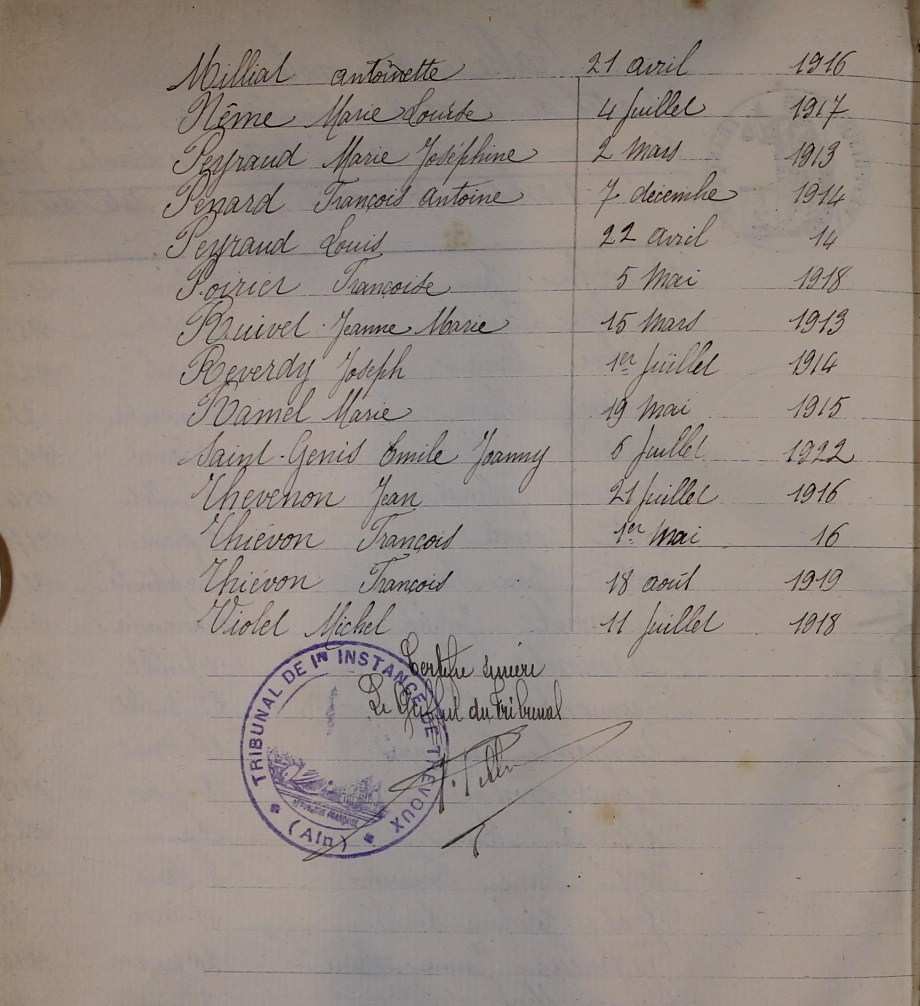 Milliat antoinette 21 avril 1916
Nême Marie Louise 4 Juillet 1917
Peyraud Marie Joséphine 2 Mars 1913
Penard François Antoine 7 decembre 1914
Peyraud Louis 22 avril 14
Poirier Françoise 5 Mai 1918
Ruivet Jeanne Marie 15 Mars 1913
Reverdy Joseph 1er Juillet 1914
Ramel Marie 19 Mai 1915
Saint-Genis Emile Joanny 6 Juillet 1922
Thevenon Jean 21 Juillet 1916
Thiévon François 1er Mai 16
Thiévon François 18 août 1919
Violet Michel 11 Juillet 1918
Certifié sincère
Le Greffier du Tribunal
TRIBUNAL DE 1re INSTANCE DE TREVOUX
RÉPUBLIQUE FRANÇAISE
(Ain)